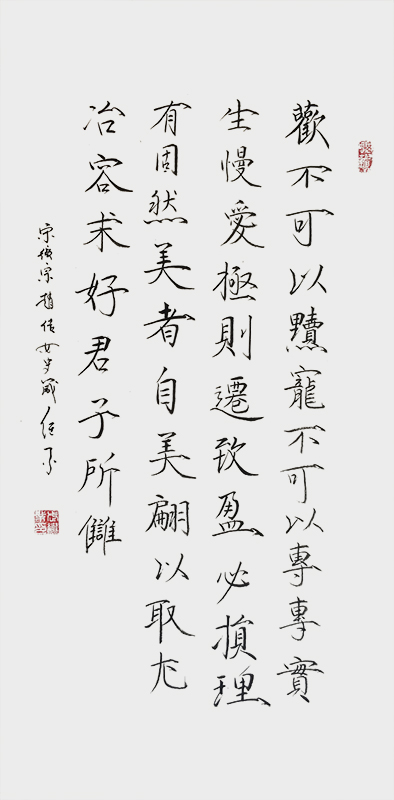 歡不可以黷寵不可以專專實
生慢愛極則遷致盈必損理
有固然美者自美翩以取尤
冶容求好君子所讎
宗徽宗趙佶女史箴